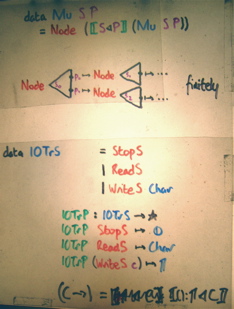 data Mu S P
= Node (⟦S◁P⟧ (Mu S P))
Node Node ...
Node ...
finitely
data IOTrS = StopS
| ReadS
| WriteS Char
IOTrP : IOTrS → ★
IOTrP StopS ↦ 𝟘
IOTrP ReadS ↦ Char
IOTrP (WriteS c) ↦ 𝟙
(C→) =